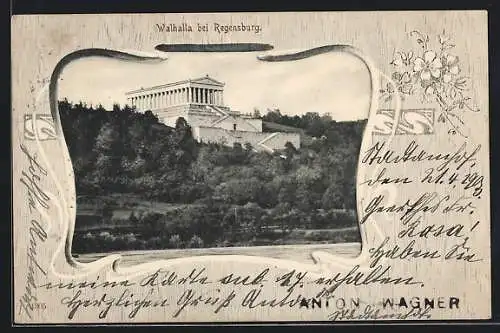 Walhalla bei Regensburg.
Stadtamhof
den 21.4.1903
Geerthes Fr.
Rosa!
haben Sie
meine Karte sub. 17. erhalten.
Herzlichen Gruß
ANTON WAGNER
Stadtamhof